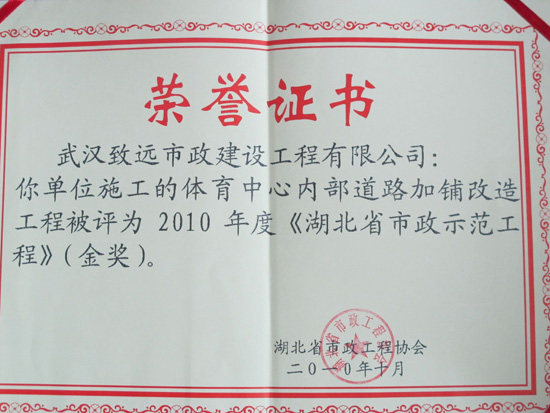 荣誉证书
武汉致远市政建设工程有限公司：
你单位施工的体育中心内部道路加铺改造
工程被评为 2010 年度《湖北省市政示范工
程》（金奖）。
湖北省市政工程协会
湖北省市政工程协会
二〇一〇年十月